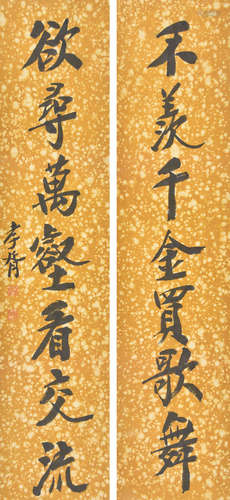 不羨千金買歌舞
欲尋萬壑看交流
孝胥